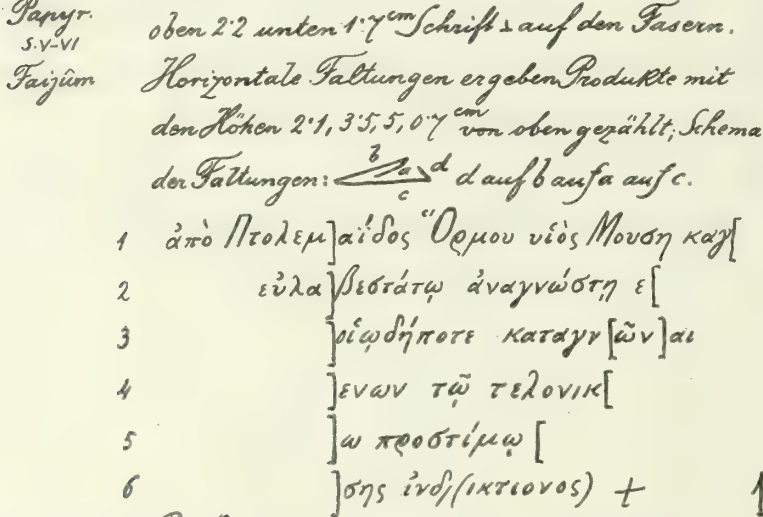 Papyr. oben 2·2 unten 1·7 cm Schrift ⊥ auf den Fasern.
S. V-VI
Faijûm Horizontale Faltungen ergeben Produkte mit
den Höhen 2·1, 3·5, 5, 0·7 cm von oben gezählt; Schema
der Faltungen: b a d c d auf b auf a auf c.
1 ἀπὸ Πτολεμ]αΐδος Ὅρμου υἱὸς Μουση καγ[
2 εὐλα]βεστάτῳ ἀναγνώστῃ ε[
3 ]οἱῳδήποτε καταγν[ῶν]αι
4 ]ενων τῷ τελονικ[
5 ]ω προστίμῳ [
6 ]σης ἰνδ/(ικτιονος) +